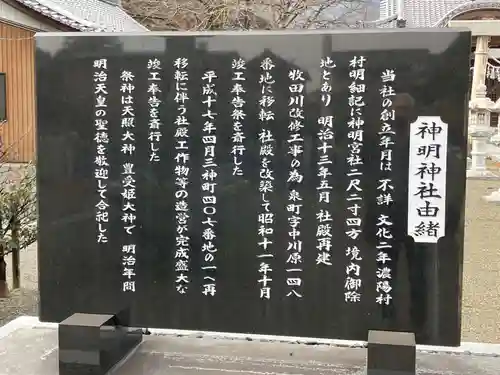 神明神社由緒
当社の創立年月は 不詳 文化二年 濃陽村
村明細記に神明宮社二尺二寸四方 境内御除
地とあり 明治十三年五月 社殿再建
牧田川改修工事の為 泉町字中川原一四八
番地に移転 社殿を改築して昭和十一年十月
竣工奉告祭を斉行した
平成十七年四月三神町四〇七番地の一へ再
移転に伴う社殿工作物等の造営が完成盛大な
竣工奉告を斉行した
祭神は天照大神 豊受姫大神で 明治年間
明治天皇の聖徳を歓迎して合祀した